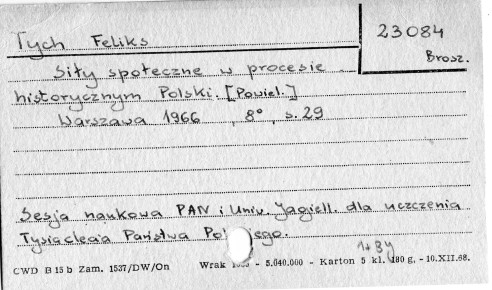 Tych Feliks
23084
Brosz.
Siły społeczne w procesie
historycznym Polski. [Powiel.]
Warszawa 1966, 8°, s. 29
Sesja naukowa PAN i Univ. Jagiell. dla uczczenia
Tysiąclecia Państwa Po jego.
1+By
CWD B 15 b Zam. 1537/DW/On Wrak - 5.040.000 - Karton 5 kl. 180 g. - 10.XII.68.